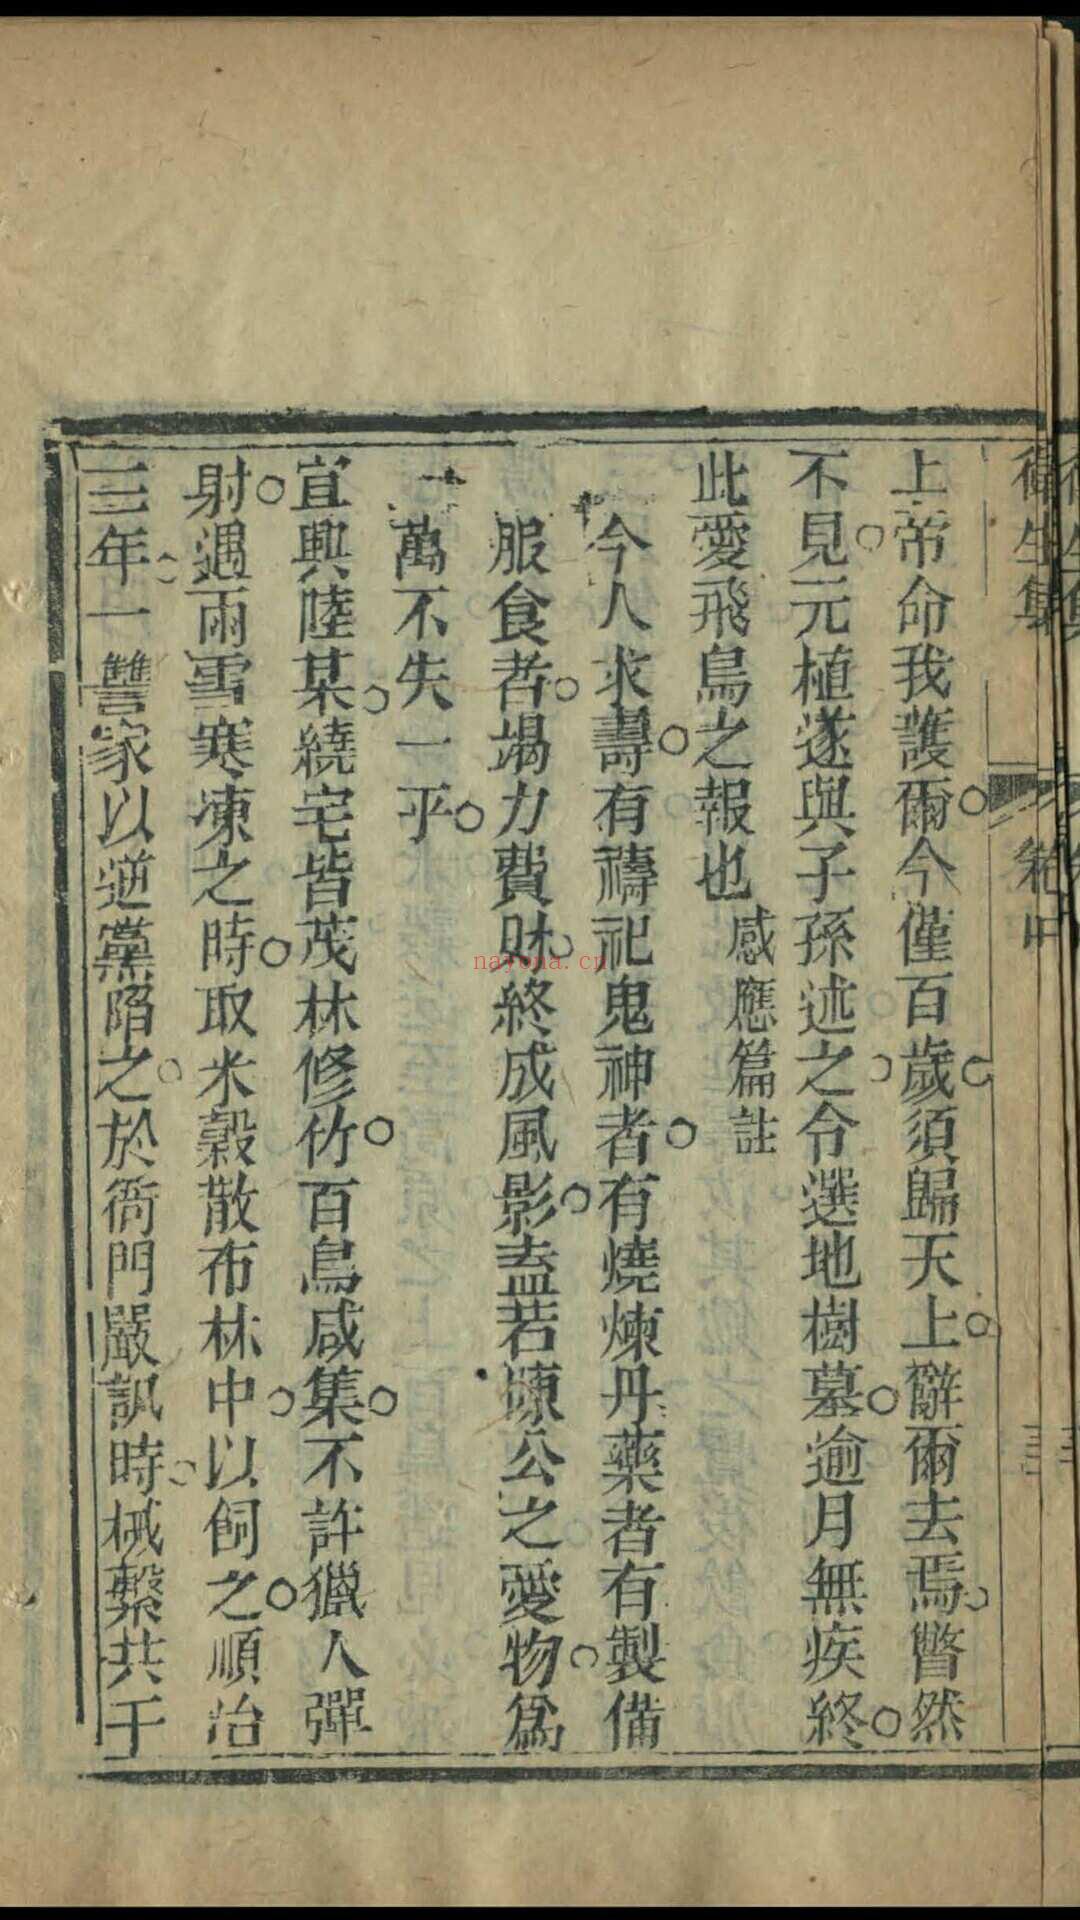 上帝命我護爾今僅百歲須歸天上辭爾去焉瞥然
不見元植遂與子孫述之令選地樹墓逾月無疾終
此愛飛鳥之報也感應篇註
今人求壽有禱祀鬼神者有燒煉丹藥者有製備
服食者竭力費財終成風影盍若陳公之愛物爲
萬不失一乎
宜興陸某繞宅皆茂林修竹百鳥咸集不許獵人彈
射遇雨雪寒凍之時取米穀散布林中以飼之順治
三年一讐家以逆黨陷之於衙門嚴訊時械繫共十
生集
卷中
nayona.cn